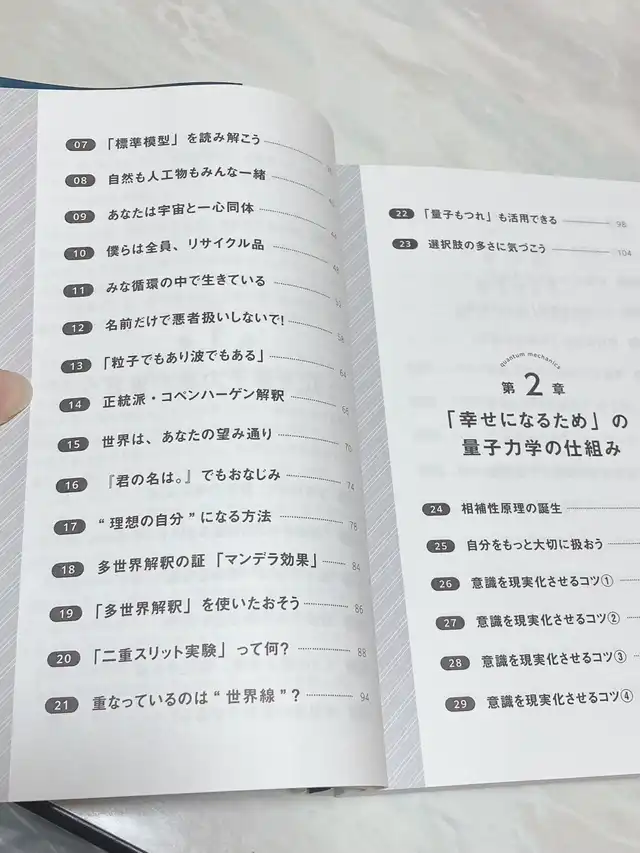 07 「標準模型」を読み解こう
08 自然も人工物もみんな一緒
09 あなたは宇宙と一心同体
10 僕らは全員、リサイクル品
11 みな循環の中で生きている
12 名前だけで悪者扱いしないで! 58
13 「粒子でもあり波でもある」 64
14 正統派・コペンハーゲン解釈 66
15 世界は、あなたの望み通り 70
16 『君の名は。』でもおなじみ 74
17 “理想の自分”になる方法 78
18 多世界解釈の証「マンデラ効果」 84
19 「多世界解釈」を使いたおそう 86
20 「二重スリット実験」って何? 88
21 重なっているのは“世界線”? 94
22 「量子もつれ」も活用できる 98
23 選択肢の多さに気づこう 104
quantum mechanics
第2章
「幸せになるため」の
量子力学の仕組み
24 相補性原理の誕生
25 自分をもっと大切に扱おう
26 意識を現実化させるコツ①
27 意識を現実化させるコツ②
28 意識を現実化させるコツ③
29 意識を現実化させるコツ④